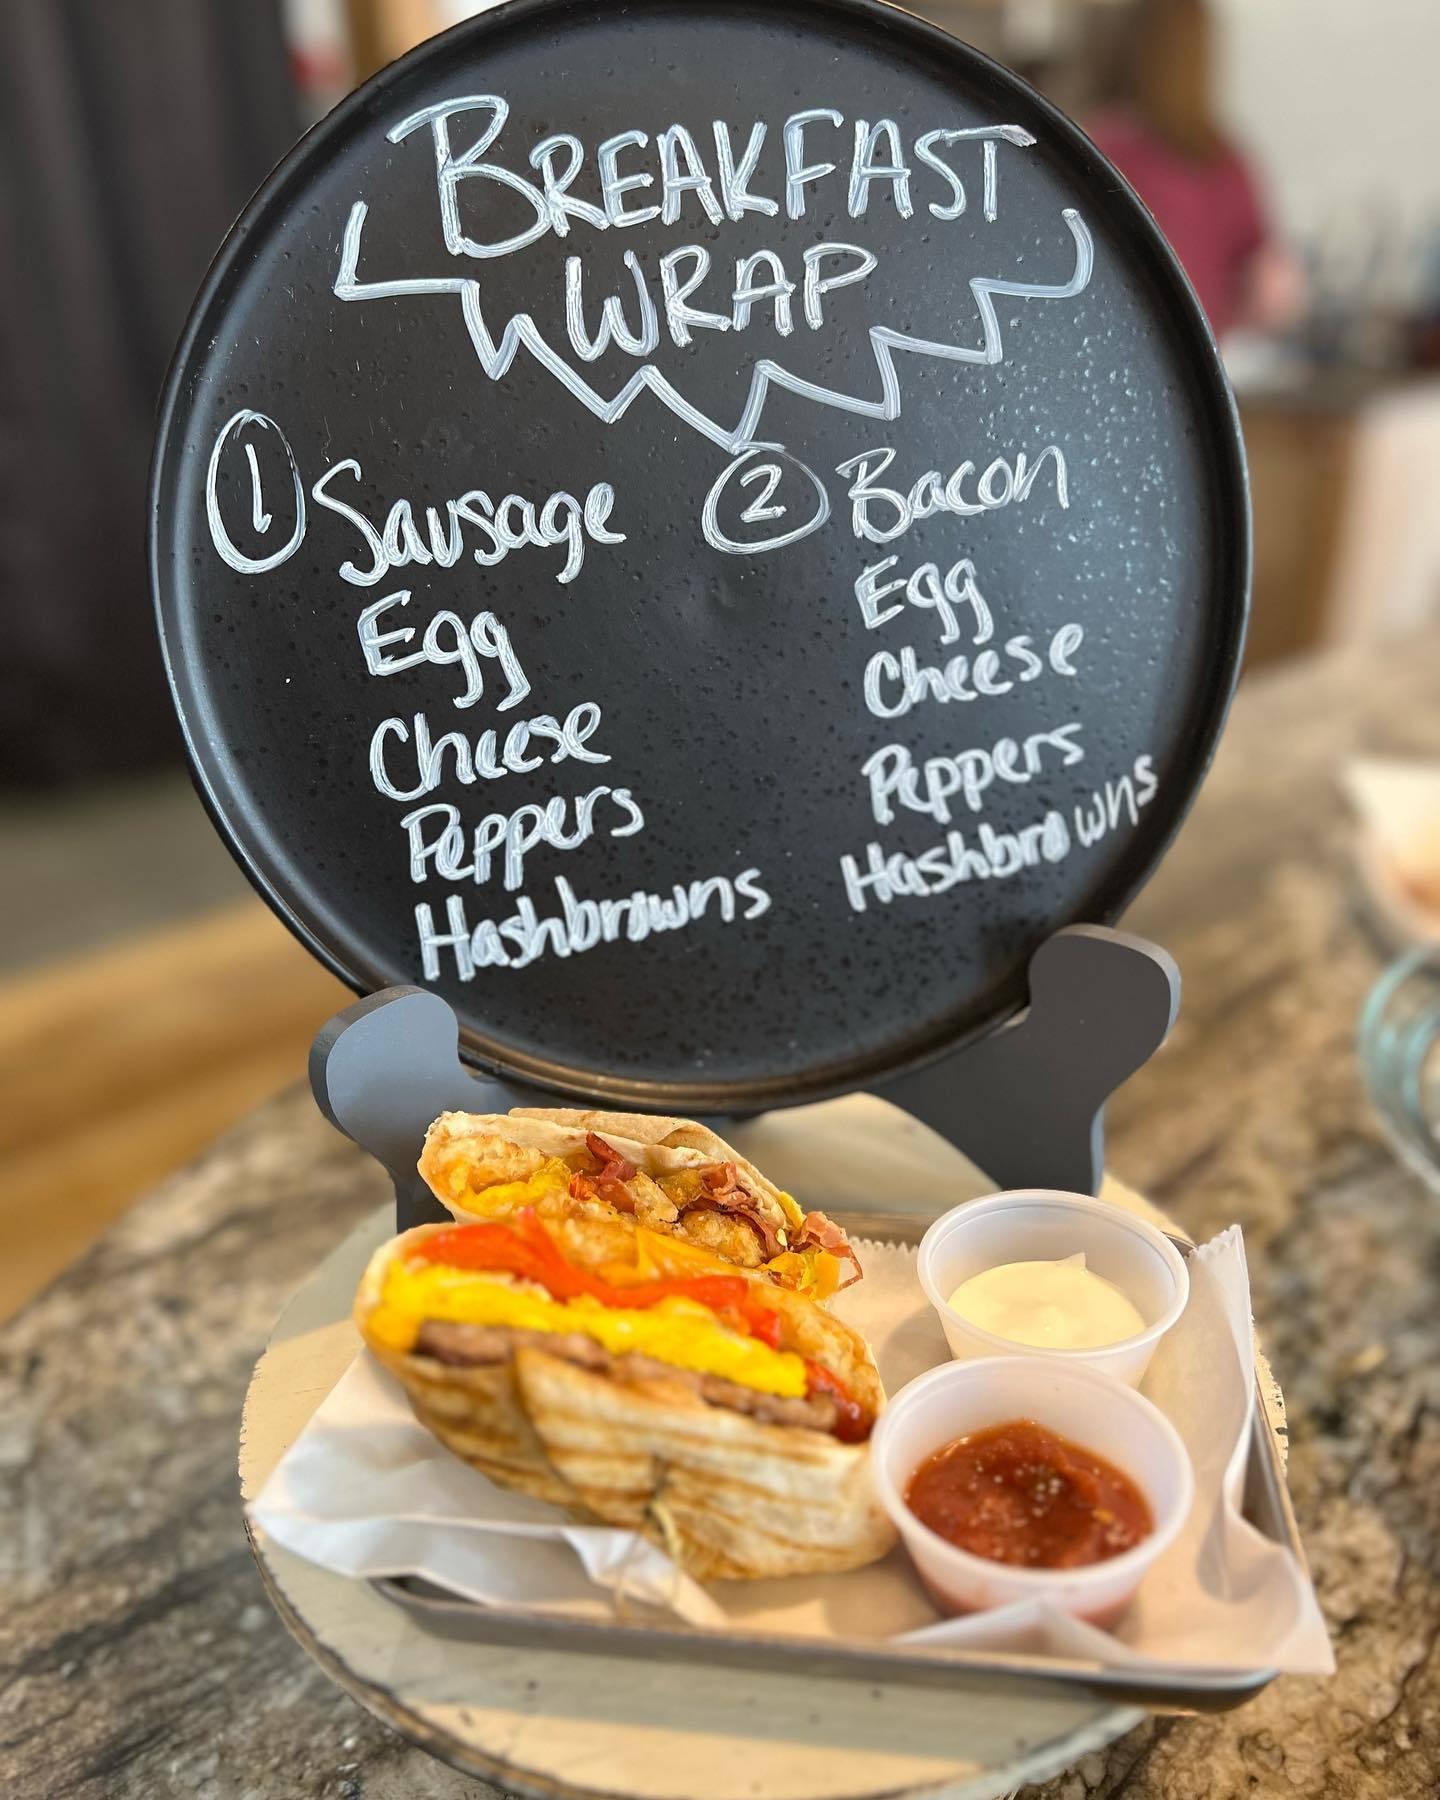 BREAKFAST
WRAP
1 Sausage
Egg
Cheese
Peppers
Hashbrowns
2 Bacon
Egg
Cheese
Peppers
Hashbrowns